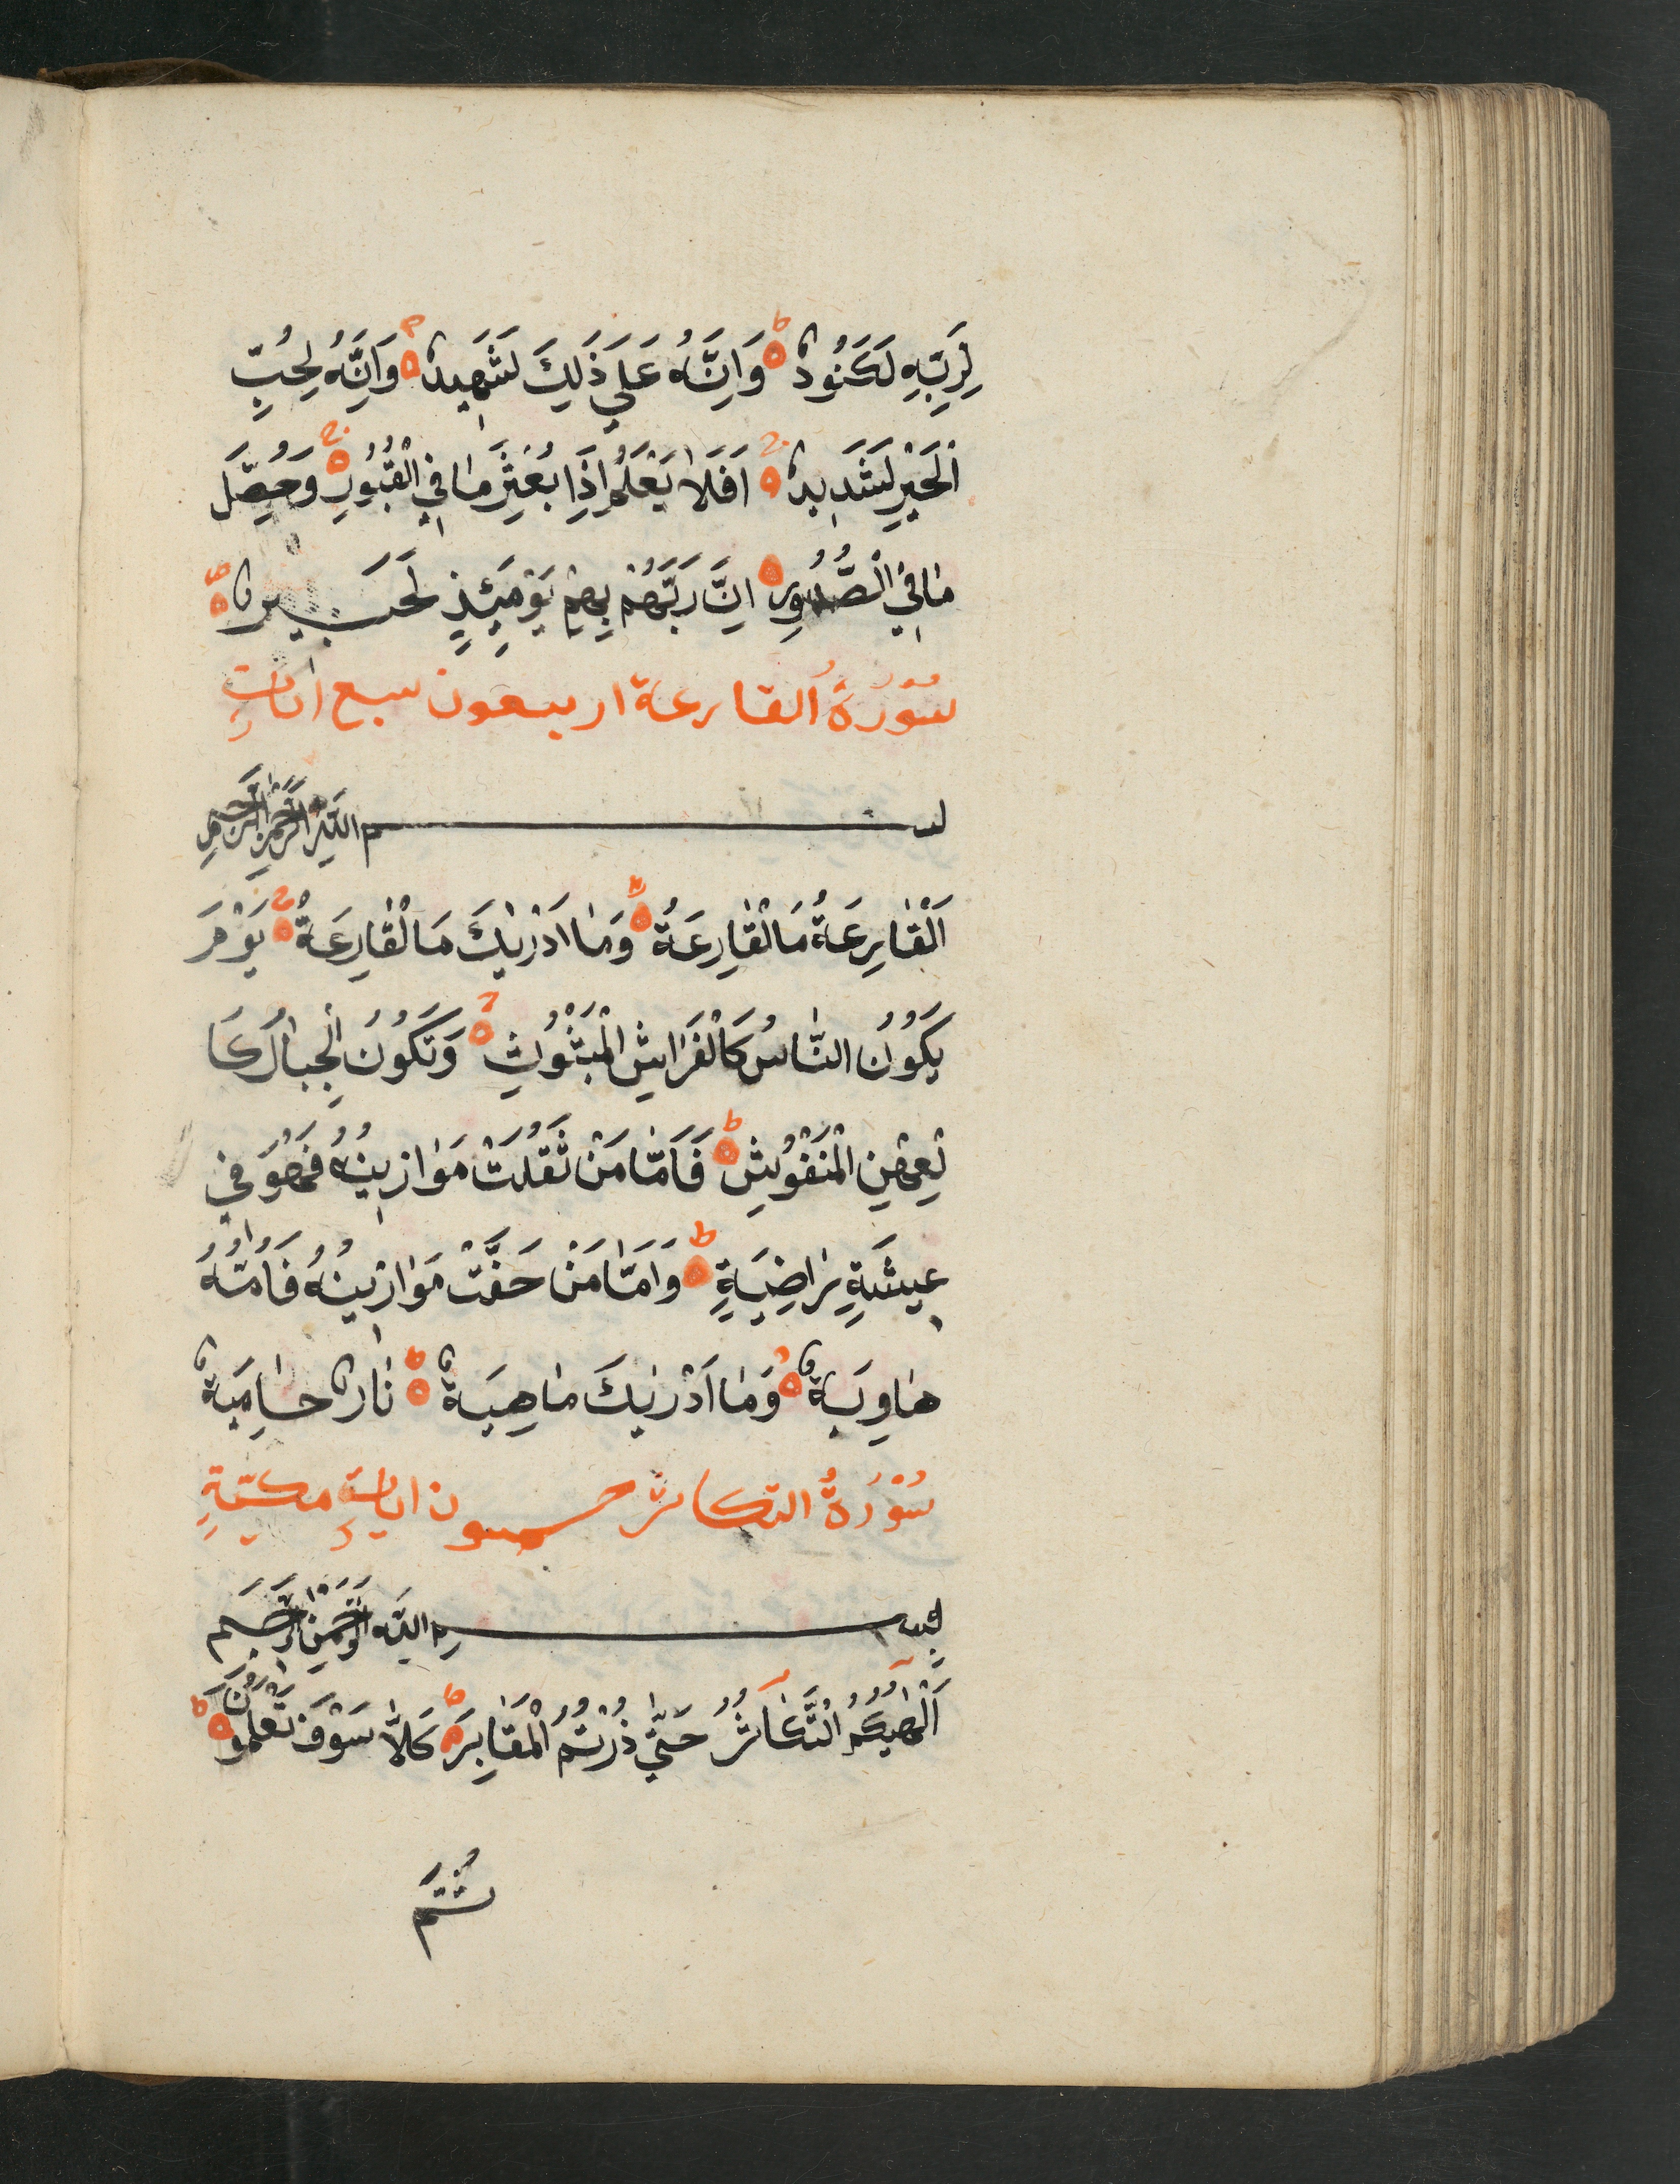 لِرَبِّهِ لَكَنُودٌ وَاِنَّهُ عَلٰي ذٰلِكَ لَشَهِيدٌ وَاِنَّهُ لِحُبِّ
الْخَيْرِ لَشَدِيدٌ اَفَلَا يَعْلَمُ اِذَا بُعْثِرَ مَا فِي الْقُبُورِ وَحُصِّلَ
مَا فِي الصُّدُورِ اِنَّ رَبَّهُمْ بِهِمْ يَوْمَئِذٍ لَخَبِيرٌ
سُوْرَةُ القارعة اربعون سبع اٰيات
بسم اللّٰهِ الرَّحْمٰنِ الرَّحِيمِ
اَلْقَارِعَةُ مَا الْقَارِعَةُ وَمَا اَدْرٰيكَ مَا الْقَارِعَةُ يَوْمَ
يَكُوْنُ النَّاسُ كَالْفَرَاشِ الْمَبْثُوثِ وَتَكُوْنُ الْجِبَالُ كَا
لْعِهْنِ الْمَنْفُوْشِ فَاَمَّا مَنْ ثَقُلَتْ مَوَازِينُهُ فَهُوَ فِي
عِيشَةٍ رَاضِيَةٍ وَاَمَّا مَنْ خَفَّتْ مَوَازِينُهُ فَاُمُّهُ
هَاوِيَةٌ وَمَا اَدْرٰيكَ مَاهِيَةٌ نَارٌ حَامِيَةٌ
سُوْرَةُ التكاثر خمسون ايات مكيّةٍ
بِسم اللّه الرَّحْمٰنِ الرَّحِيم
اَلْهٰيكُمُ التَّكَاثُرُ حَتّٰي ذُرْتُمُ الْمَقَابِرَ كَلَّا سَوْفَ تَعْلَمُوْنَ
ثُمَّ